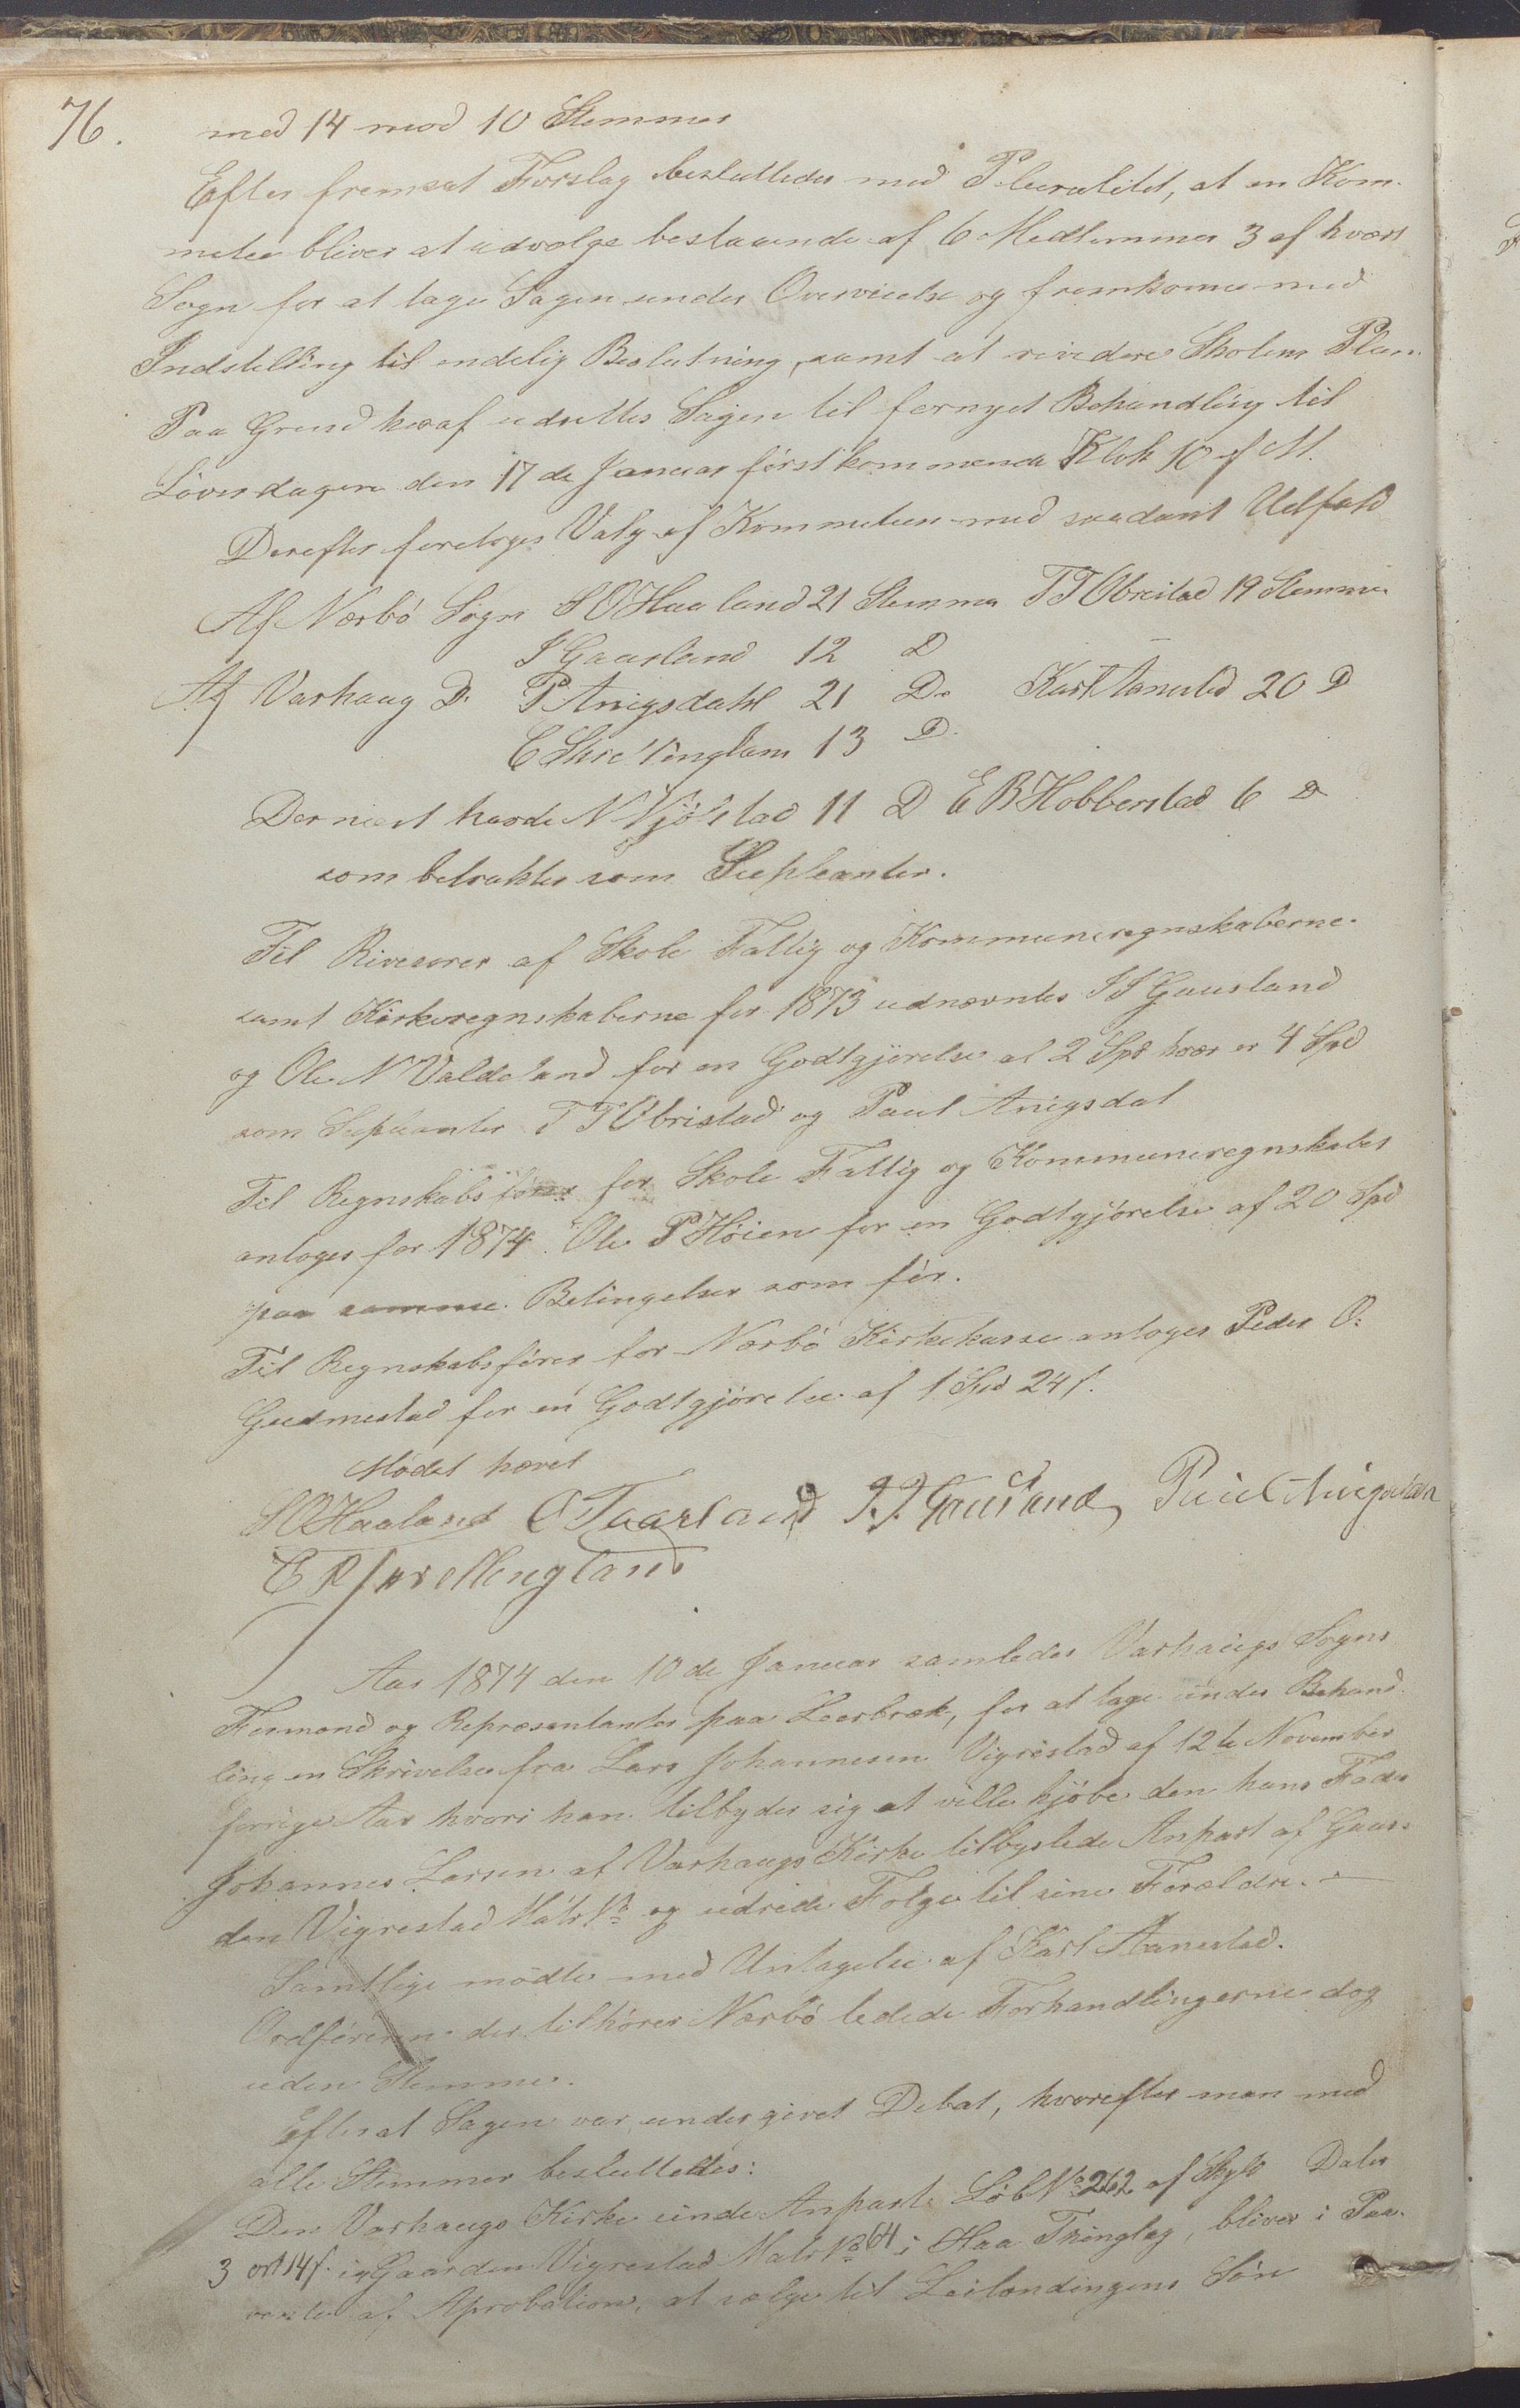 76.
med 14 mod 10 Stemmer
Efter fremsat Forslag besluttedes med Pluralitet, at en Kom-
mitee bliver at udvælge bestaaende af 6 Medlemmer 3 af hvert
Sogn for at tage Sagen under Overveielse og fremkomme med
Indstilling til endelig Beslutning, samt at revidere Skolens Plan.
Paa Grund heraf udsattes Sagen til fornyet Behandling til
Löverdagen den 17de Januar förstkommende Klok 10 f M.
Derefter foretoges Valg af Kommiteen med saadant Udfald
Af Nærbö Sogn S O Haaland 21 Stemmer T T Obrestad 19 Stemmer
I Gausland 12 D
Af Varhaug Do P Anigsdahl 21 Do Karl Aanestad 20 D
E Skretlinglann 13 D.
Dernæst havde N Njölstad 11 D E B Hobberstad 6 D
som betraktes som Supleanter.
Til Rivesorer af Skole Fattig og Kommuneregnskaberne.
samt Kirkeregnskaberne for 1873 udnævntes I I Gausland
og Ole N Valdeland for en Godtgjörelse af 2 Spd hver er 4 Spd
som Supleanter T T Obristad og Paul Anigsdal
Til Regnskabsförer for Skole Fattig og Kommuneregnskabet
antoges for 1874 Ole P Höien for en Godtgjörelse af 20 Spd
paa samme Betingelser som för.
Til Regnskabsförer for Nærbö Kirkekasse antoges Peder O.
Gudmestad for en Godtgjörelse af 1 Spd 24 s.
Mödet hævet
S O Haaland O Taarland I. I. Gausland Paul Anigsdan
E R Skretlingland
Aar 1874 den 10de Januar samledes Varhaugs Sogns
Formænd og Repræsentanter paa Leerbræk, for at tage under Behand-
ling en Skrivelse fra Lars Johannesen Vigrestad af 12te November
forrige Aar hvori han tilbyder sig at ville kjöbe den hans Fader
Johannes Larsen af Varhaugs Kirke tilbyslede Anpart af Gaar-
den Vigrestad Matr No og udrede Folge til sine Forældre. —
Samtlige mödte med Untagelse af Karl Aanestad.
Ordföreren der tilhörer Nærbö ledede Forhandlingerne dog
uden Stemme.
Efterat Sagen var undergivet Debat, hvorefter man med
alle Stemmer besluttedes:
Den Varhaugs Kirke eiende Anpart Löb No 262 af Skyld Daler
3 ort 14 s. i Gaarden Vigrestad Matr No 64 i Haa Thinglag, bliver i Paa-
vente af Aprobation, at sælge til Leilændingens Sön